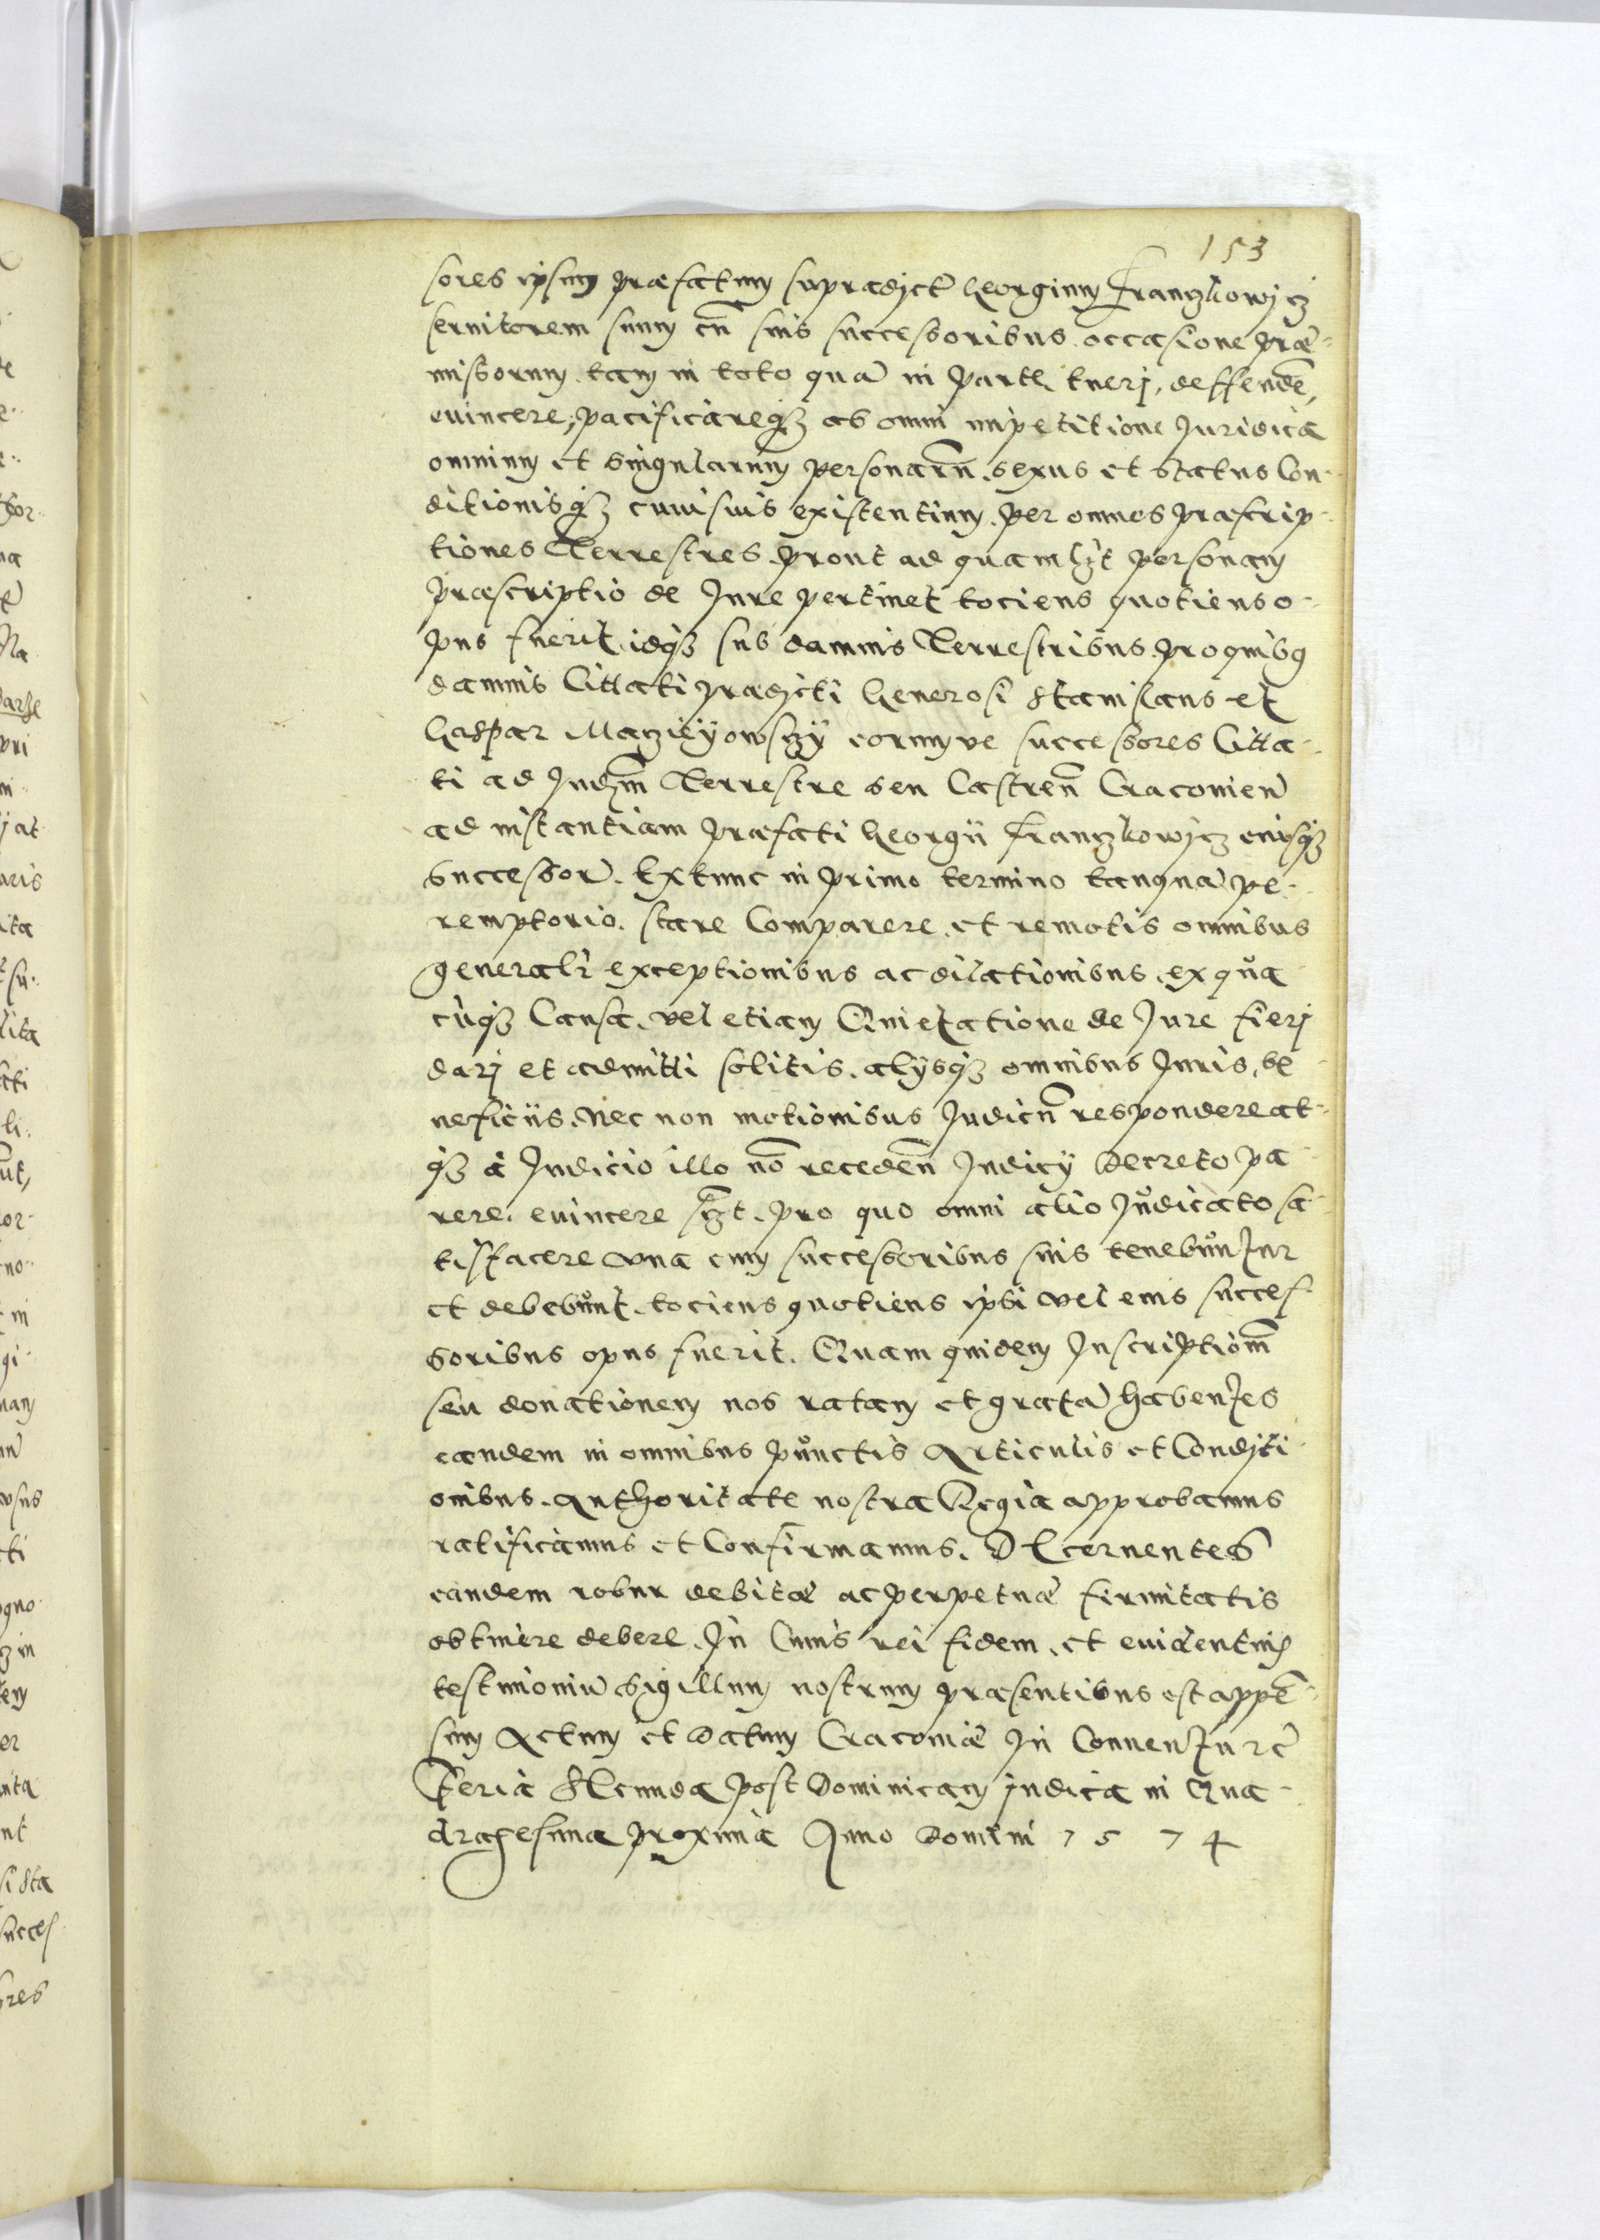 153
sores ipsum præfatum supradict Georgium Franczkowicz
seruitorem suum cū suis successoribus occasione præ-
missorum tam in toto quā in parte tueri, deffendē,
euincere, pacificareq3 ab omni impetitione Juridica
omnium et singularum personarūm sexus et status Con-
ditionisq3 cuiusuis existentium per omnes præscrip-
tiones Terrestres prout ad quamlzt personam
præscriptio de Jure pertinet tociens quotiens o-
pus fuerit idq3 sub damnis Terrestribus pro quibq
damnis Cittati prædicti Generosi Stanislaus et
Gaspar eorumve successores Citta-
ti ad Judm̄ Terrestre seu Castren̄ Cracouien
ad instantiam præfati Georgii Franczkowicz eiusq3
successor. Extunc in primo termino tanquā pe-
remptorio. stare Comparere et remotis omnibus
generali exceptionibus ac dilationibus ex qua
cūq3 Causa vel etiam Quietatione de Jure fieri
dari et admitti solitis. alysq3 omnibus Juris be
neficiis. Nec non motionibus Judicū respondere at-
q3 à Judicio illo nō receden̄ Judicy Decreto pa
rere. euincere pro quo omni alio Judicato sa-
tisfacere vna cum successoribus suis tenebuntur
et debebunt tociens quotiens ipsi vel eius succes-
soribus opus fuerit. Quam quidem Inscriptiom̄
seu donationem nos ratam et gratā habentes
eandem in omnibus punctis Articulis et Conditi
onibus. Authoritate nostra Regia approbamus
ratificamus et Confirmamus. DEcernentes
eandem robur debitæ ac perpetuæ firmitatis
obtinere debere. In Cuius rei fidem et euidentius
testimoniū Sigillum nostrum præsentibus est appē-
sum Actum et Datum Cracouiæ In Conuentu rē
Feria SEcunda post Dominicam Judica in Qua-
dragesima proxima Anno Domini 1574